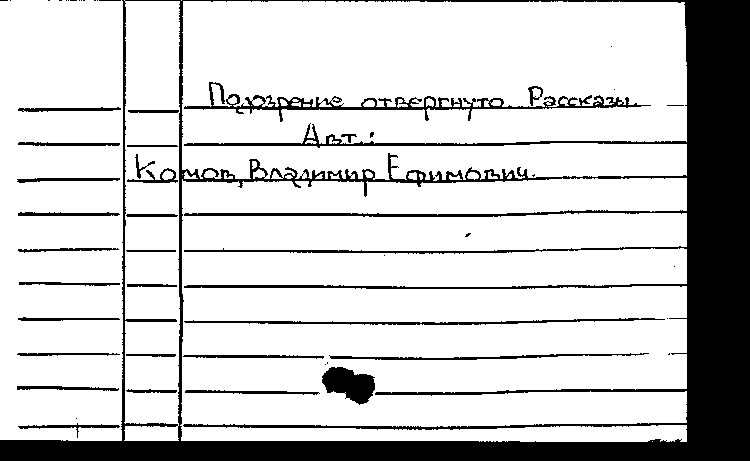 Подозрение отвергнуто. Рассказы.
Авт.:
Комов, Владимир Ефимович.